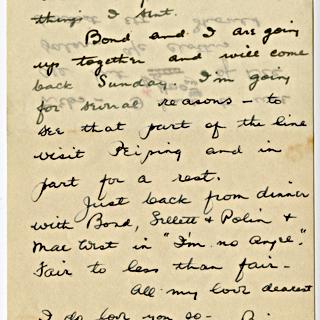 things I sent.
Bond and I are going
up together and will come
back Sunday. I'm going
for several reasons – to
see that part of the line
visit Peiping and in
part for a rest.
Just back from dinner
with Bond, Sellett & Polin &
Mae West in "I'm no Angel".
Fair to less than fair –
All my love dearest
I do love you so –